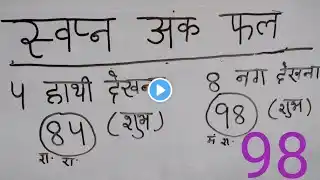 स्वप्न अंक फल
4 हाथी देखन
84 (शुभ)
रा. रा.
8 नग देखना
98 (शुभ)
98